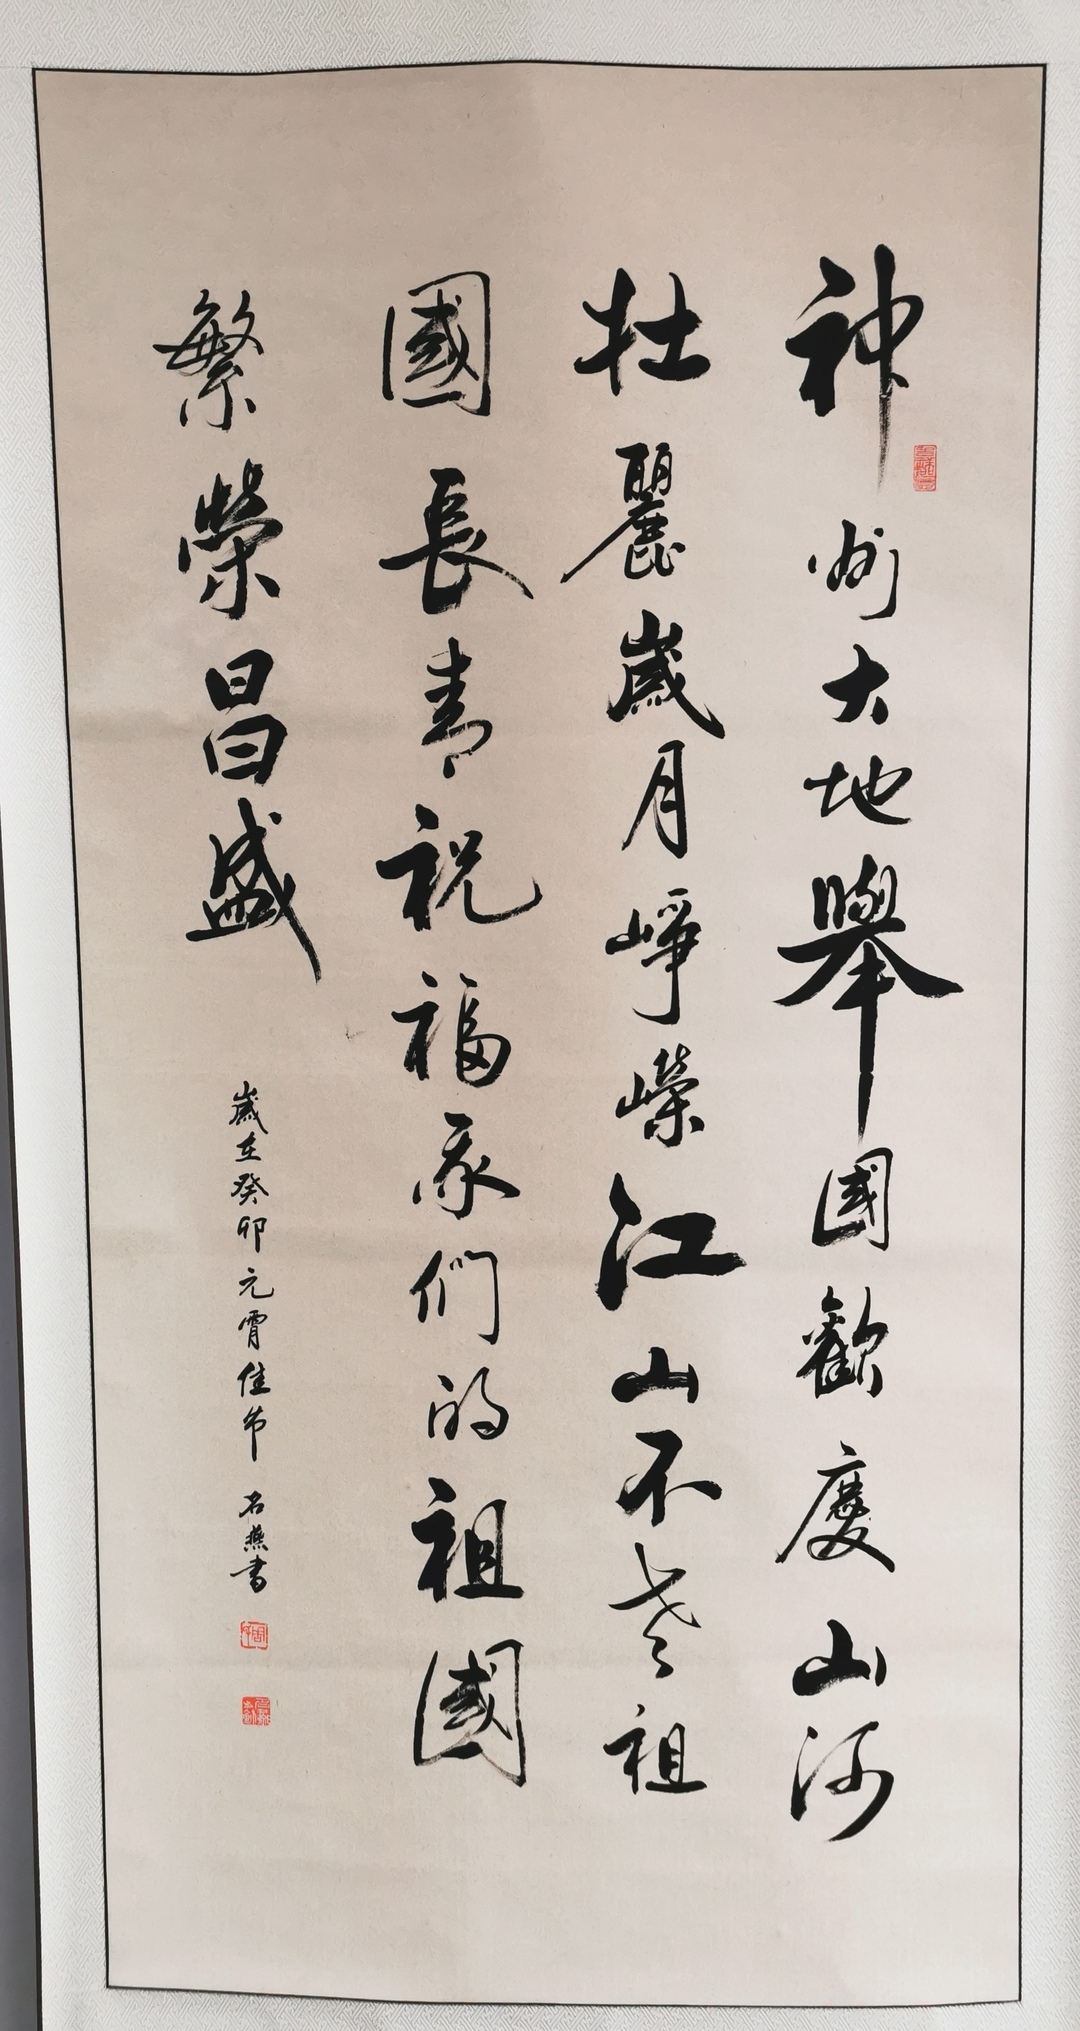 神州大地舉國歡慶山河
壮麗歲月崢嶸江山不老祖
國長青祝福我們的祖國
繁榮昌盛
歲在癸卯元宵佳节 石燕书